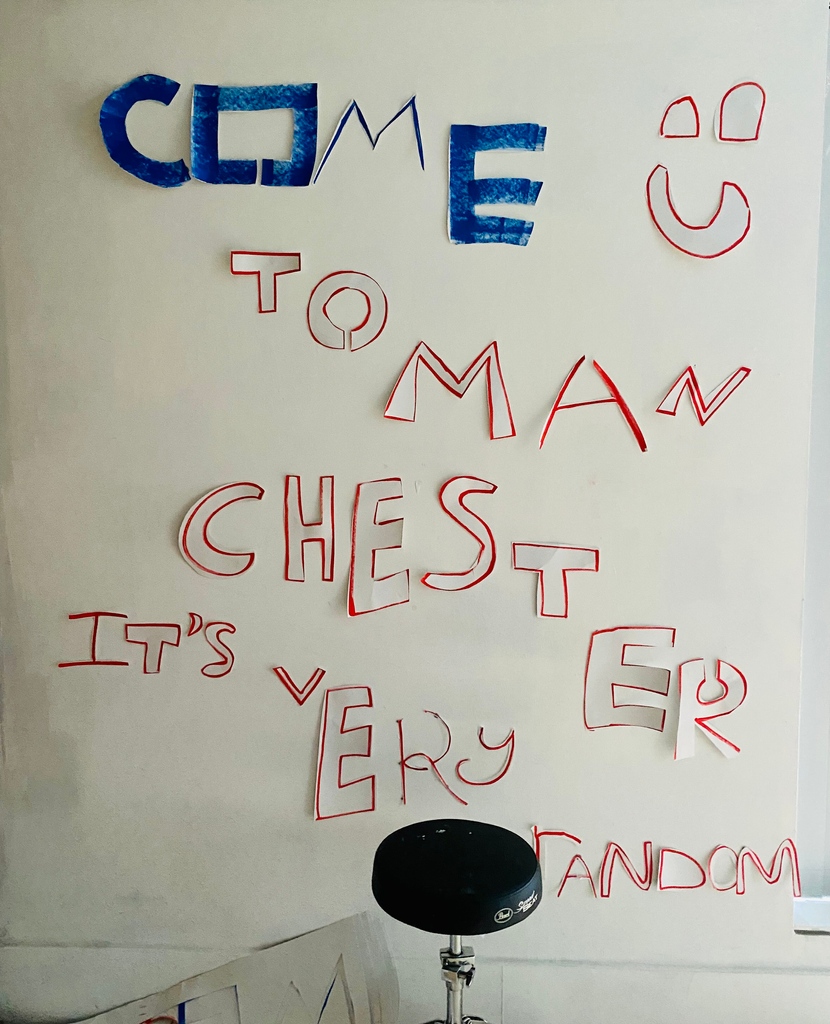 COME
TO
MAN
CHEST
ER
IT'S
VERY
RANDOM
Pearl